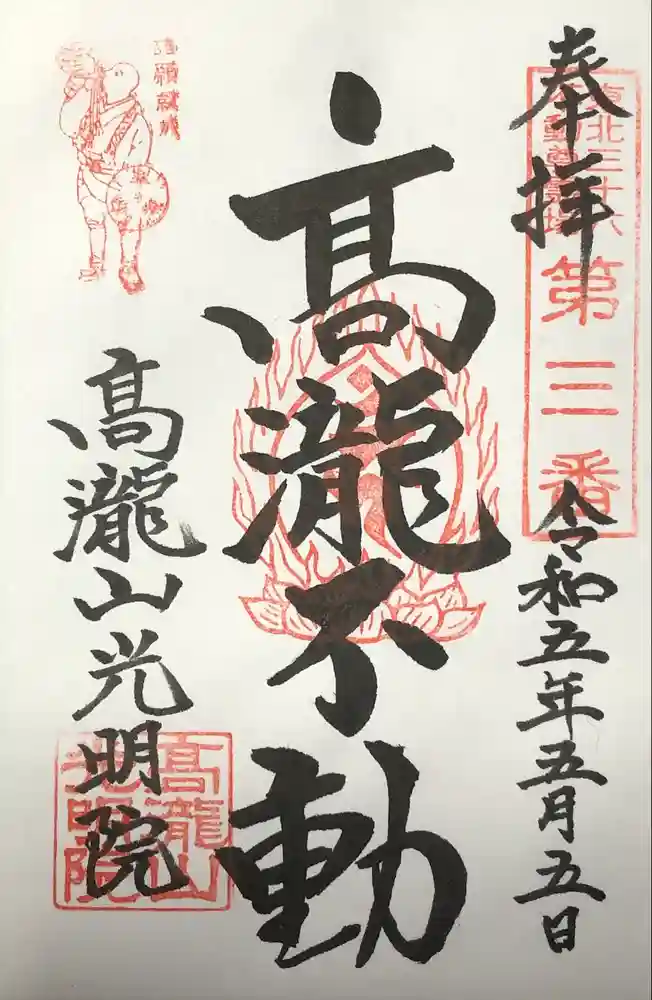 奉拝
東北三十六
不動尊霊場
第三番
令和五年五月五日
高瀧不動
高瀧山光明院
高瀧山
光明院